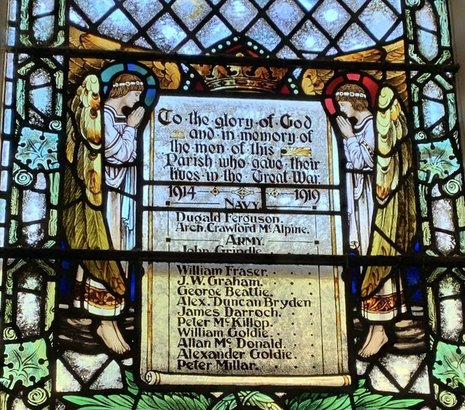 To the glory of God
and in memory of
the men of this
Parish who gave their
lives in the Great War.
1914 1919
NAVY
Dugald Ferguson.
Arch. Crawford McAlpine.
ARMY.
John Grindle
William Fraser.
J.W. Graham.
George Beattie.
Alex. Duncan Bryden
James Darroch.
Peter McKillop.
William Goldie.
Allan McDonald.
Alexander Goldie.
Peter Millar.